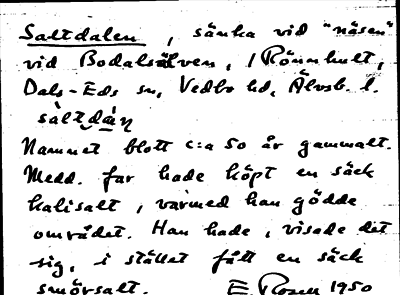 Saltdalen, sänka vid "näsen"
vid Bodalsälven, i Rönnhult,
Dals-Eds sn, Vedbo hd, Älvsb. l.
sàltdáṇ
Namnet blott c:a 50 år gammalt.
Medd. far hade köpt en säck
kalisalt, varmed han gödde
området. Han hade, visade det
sig, i stället fått en säck
smörsalt. E. Rosell 1950